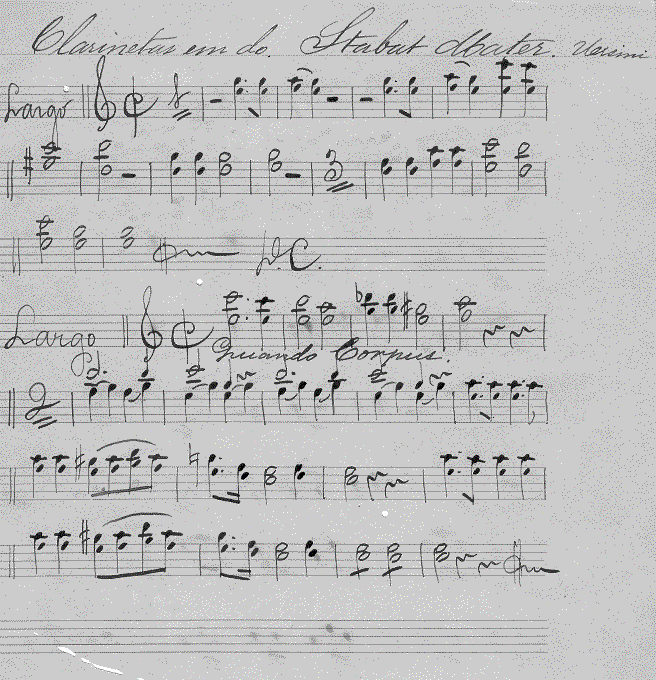 Clarinetas em do. Stabat Mater.
Largo
3
D.C.
Largo
Quando Corpus.
2